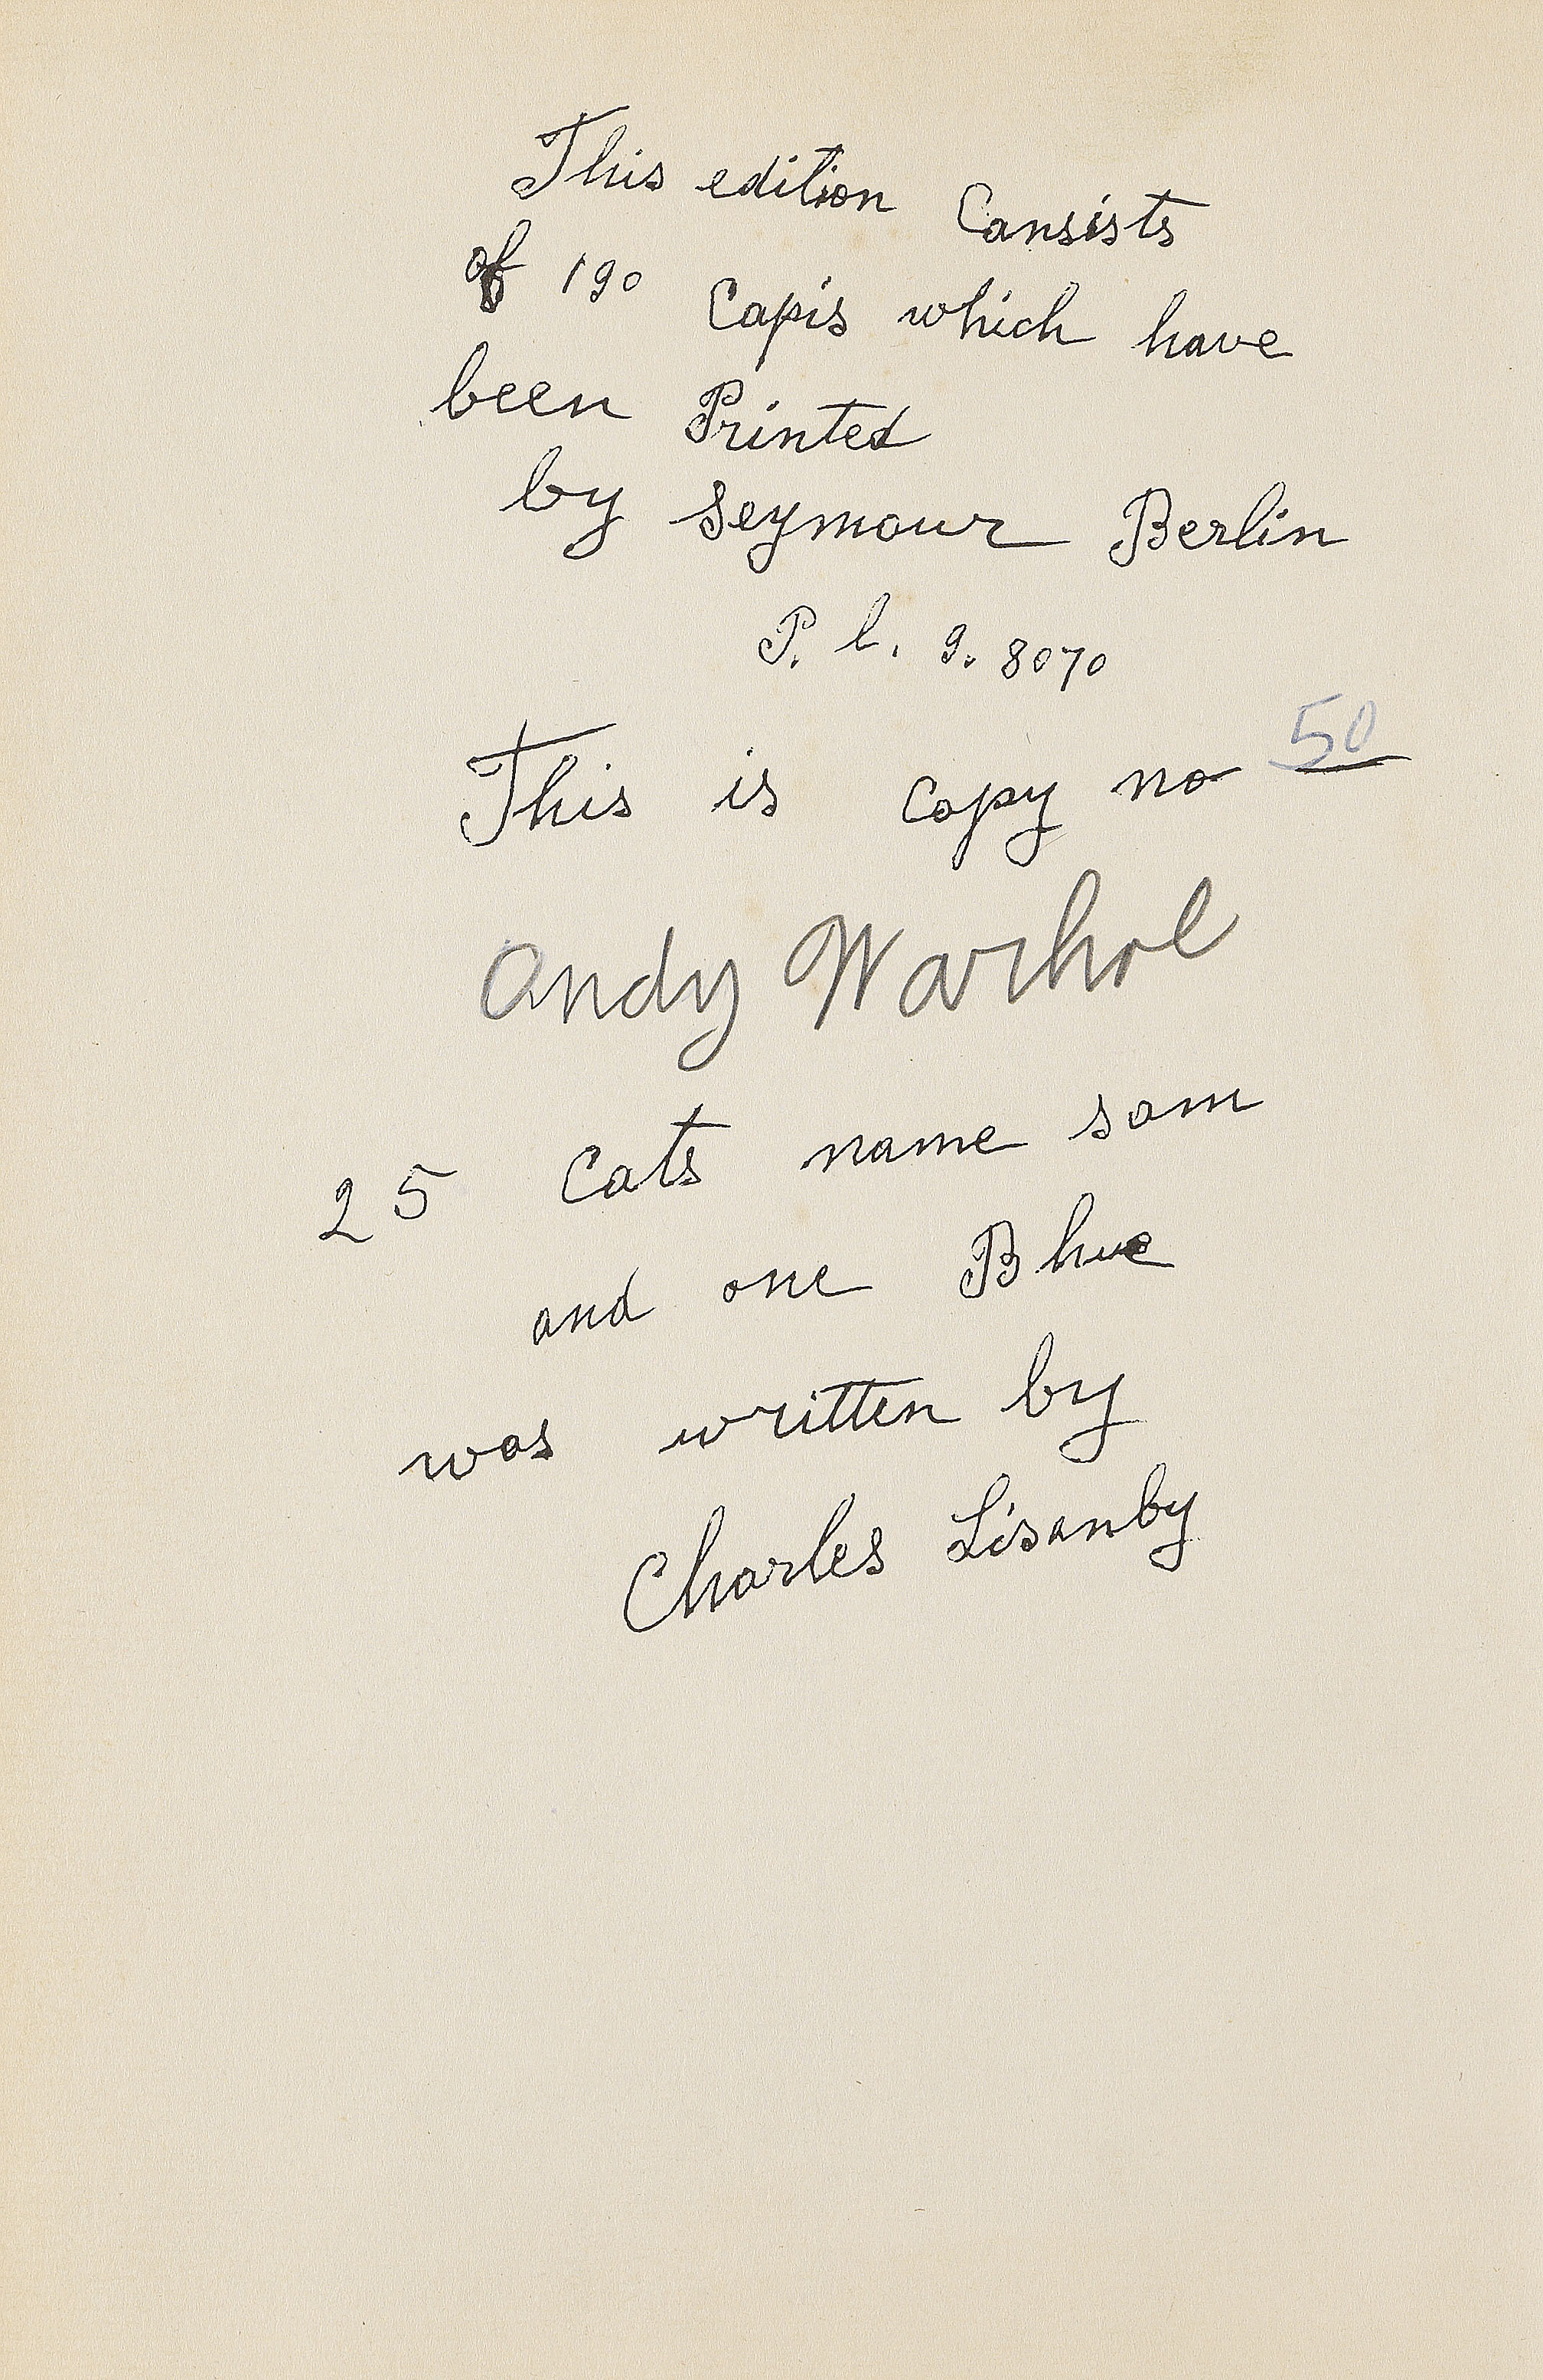 This edition Cansists
of 190 Capis which have
been Printed
by Seymour Berlin
P. l. 9. 8070
This is Copy no 50
Andy Warhol
25 Cats name sam
and one Bhue
was written by
Charles Lisanby